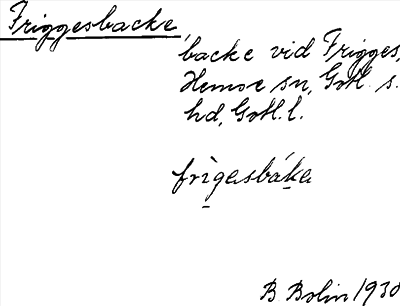 Friggesbacke,
backe vid Frigges,
Hemse sn, Gotl. s.
hd, Gotl. l.
frìgesbáke
B Bolin 1930